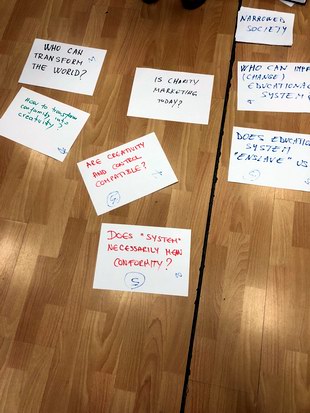 WHO CAN
TRANSFORM
THE WORLD?
How to transform
conformity into
creativity?
IS CHARITY
MARKETING
TODAY?
ARE CREATIVITY
AND CONTROL
COMPATIBLE?
5
DOES "SYSTEM"
NECESSARILY MEAN
CONFORMITY?
5
SOCIETY
WHO CAN
(CHANGE)
EDUCATION
SYSTEM
DOES EDUCATION
SYSTEM
"ENSLAVE" US